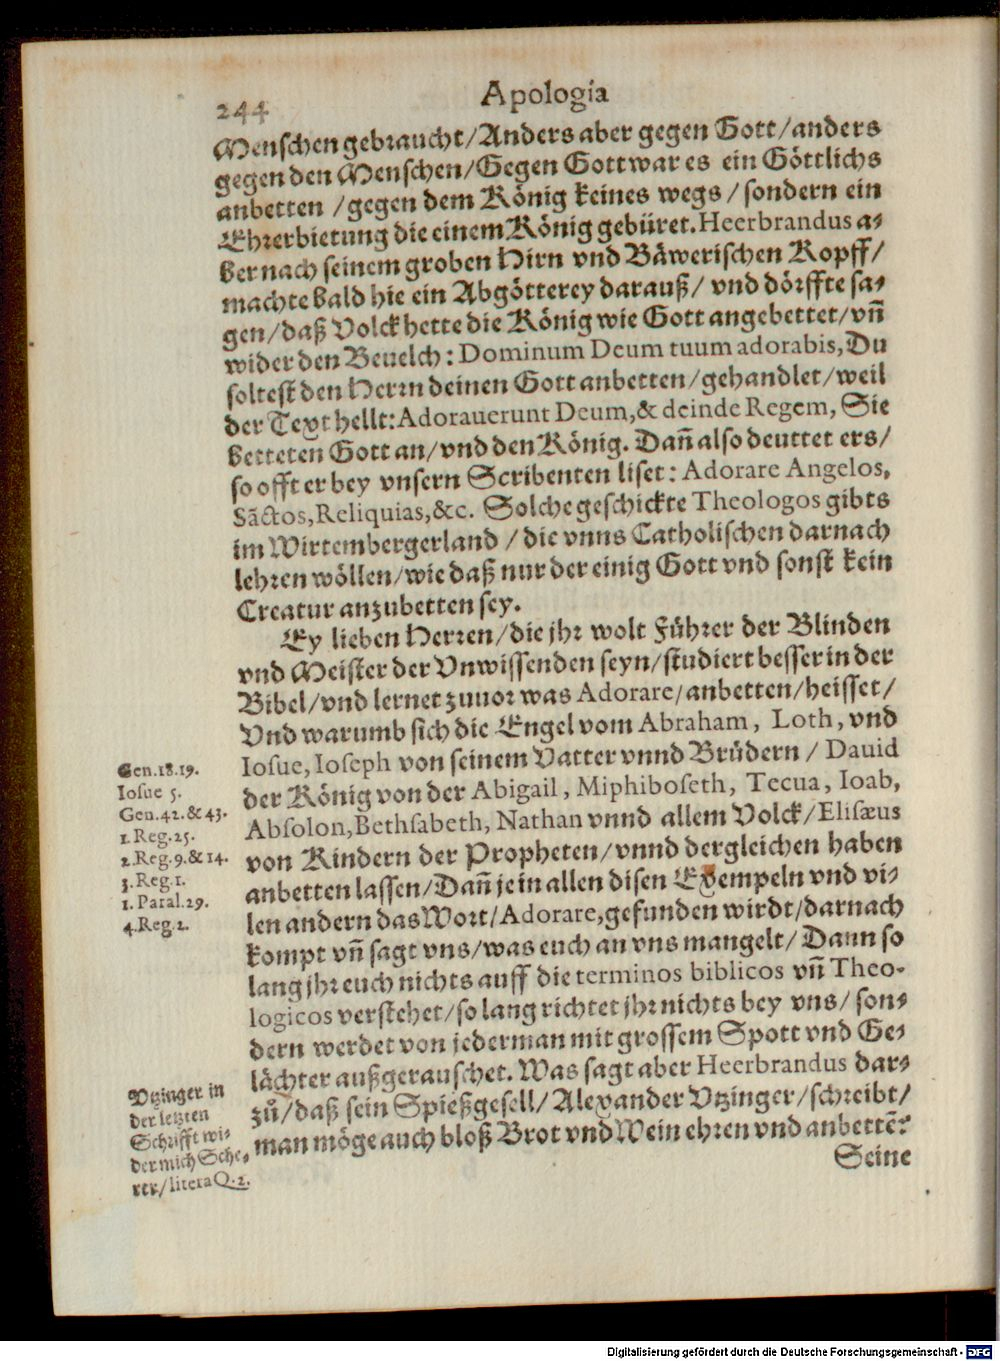 244
Apologia
Menschen gebraucht/Anders aber gegen Gott/anders
gegen den Menschen/Gegen Gott war es ein Göttlichs
anbetten /gegen dem König keines wegs / sondern ein
Ehrerbietung die einem König gebüret. Heerbrandus a-
ber nach seinem groben Hirn vnd Bäwerischen Kopff/
machte bald hie ein Abgötterey darauß/ vnd dörffte sa-
gen/daß Volck hette die König wie Gott angebettet/vñ
wider den Beuelch: Dominum Deum tuum adorabis, Du
soltest den Herrn deinen Gott anbetten/gehandlet/weil
der Text hellt: Adorauerunt Deum, & deinde Regem, Sie
betteten Gott an/vnd den König. Dañ also deuttet ers/
so offt er bey vnsern Scribenten liset: Adorare Angelos,
Sãctos, Reliquias, &c. Solche geschickte Theologos gibts
im Wirtembergerland / die vnns Catholischen darnach
lehren wöllen/wie daß nur der einig Gott vnd sonst kein
Creatur anzubetten sey.
Ey lieben Herren/die jhr wolt Führer der Blinden
vnd Meister der Vnwissenden seyn/studiert besser in der
Bibel/vnd lernet zuuor was Adorare/anbetten/heisset/
Vnd warumb sich die Engel vom Abraham, Loth, vnd
Iosue, Ioseph von seinem Vatter vnnd Brüdern / Dauid
der König von der Abigail, Miphiboseth, Tecua, Ioab,
Absolon, Bethsabeth, Nathan vnnd allem Volck/Elisæus
von Kindern der Propheten/vnnd dergleichen haben
anbetten lassen/Dañ je in allen disen Exempeln vnd vi-
len andern das Wort/Adorare, gefunden wirdt/darnach
kompt vñ sagt vns/was euch an vns mangelt/ Dann so
lang jhr euch nichts auff die terminos biblicos vñ Theo-
logicos verstehet/so lang richtet jhr nichts bey vns/ son-
dern werdet von jederman mit grossem Spott vnd Ge-
lächter außgerauschet. Was sagt aber Heerbrandus dar-
zů/daß sein Spießgesell/Alexander Vtzinger/schreibt/
man möge auch bloß Brot vnd Wein ehren vnd anbettẽ?
Seine
Gen. 18. 19.
Iosue 5.
Gen. 42. & 43.
1. Reg. 25.
2. Reg. 9. & 14.
3. Reg. 1.
1. Paral. 29.
4. Reg. 2.
Vtzinger in
der letzten
Schrifft wi-
der mich Sche-
rer/litera Q. 2.
Digitalisierung gefördert durch die Deutsche Forschungsgemeinschaft - DFG